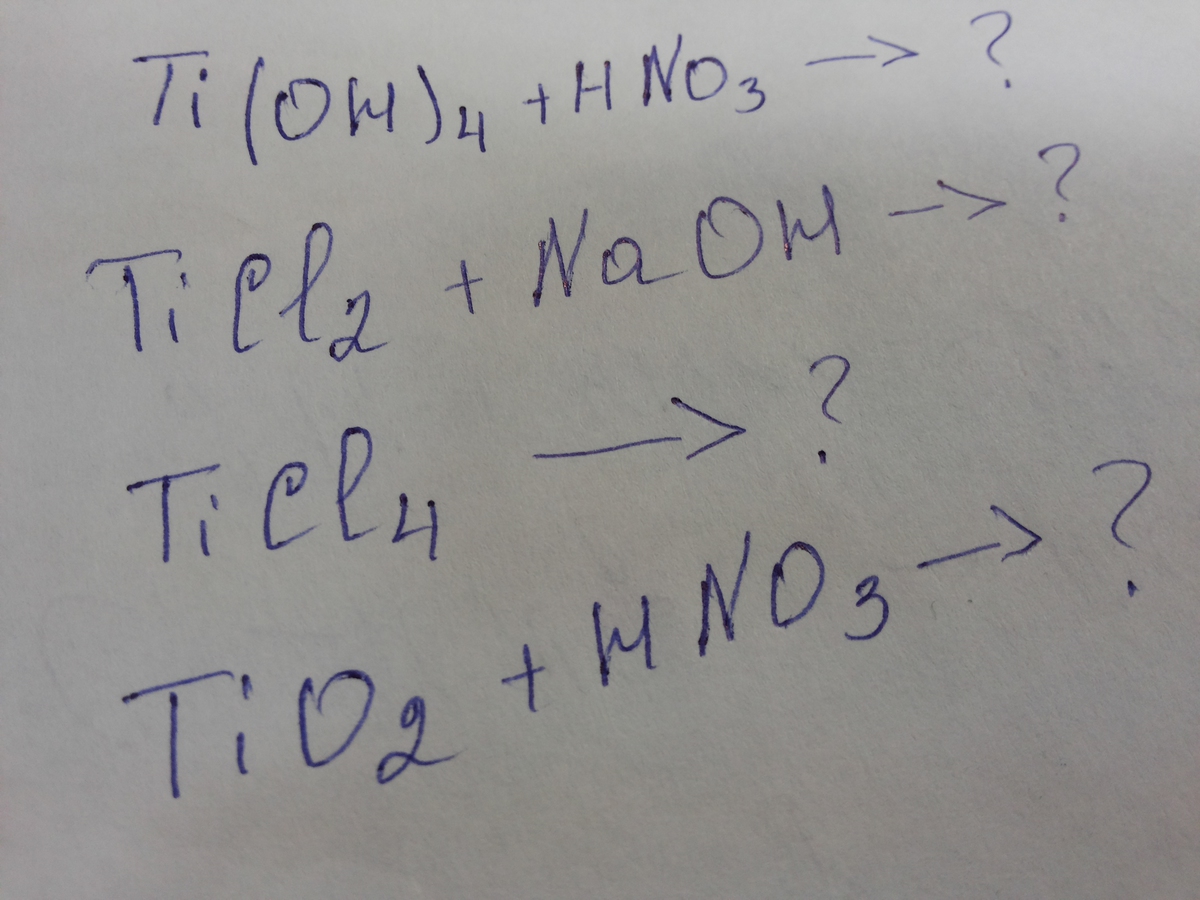 Ti(OH)₄ + HNO₃ → ?
TiCl₂ + NaOH → ?
TiCl₄ → ?
TiO₂ + HNO₃ → ?